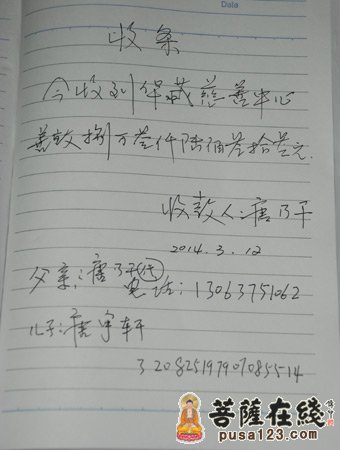 Date
收条
今收到华藏慈善中心
善款捌万叁仟陆佰叁拾叁元.
收款人:唐乃干
2014.3.12
父亲:唐乃干(代)
电话:13063751062
儿子:唐宇轩
320825197907085514
菩薩在线
pusa123.com